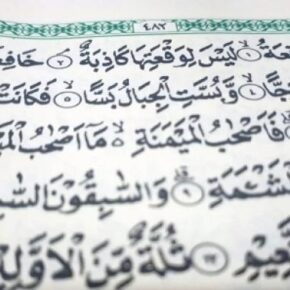 ٤٨٢
عَةُ ١ لَيْسَ لِوَقْعَتِهَا كَاذِبَةٌ ٢ خَافِ
جًّا ٤ وَبُسَّتِ الْجِبَالُ بَسًّا ٥ فَكَانَتْ
فَأَصْحٰبُ الْمَيْمَنَةِ مَآ أَصْحٰبُ الْمَ
الْمَشْـَٔمَةِ ٩ وَالسّٰبِقُونَ السّٰ
عِيمِ ١٢ ثُلَّةٌ مِّنَ الْأَوَّلِ